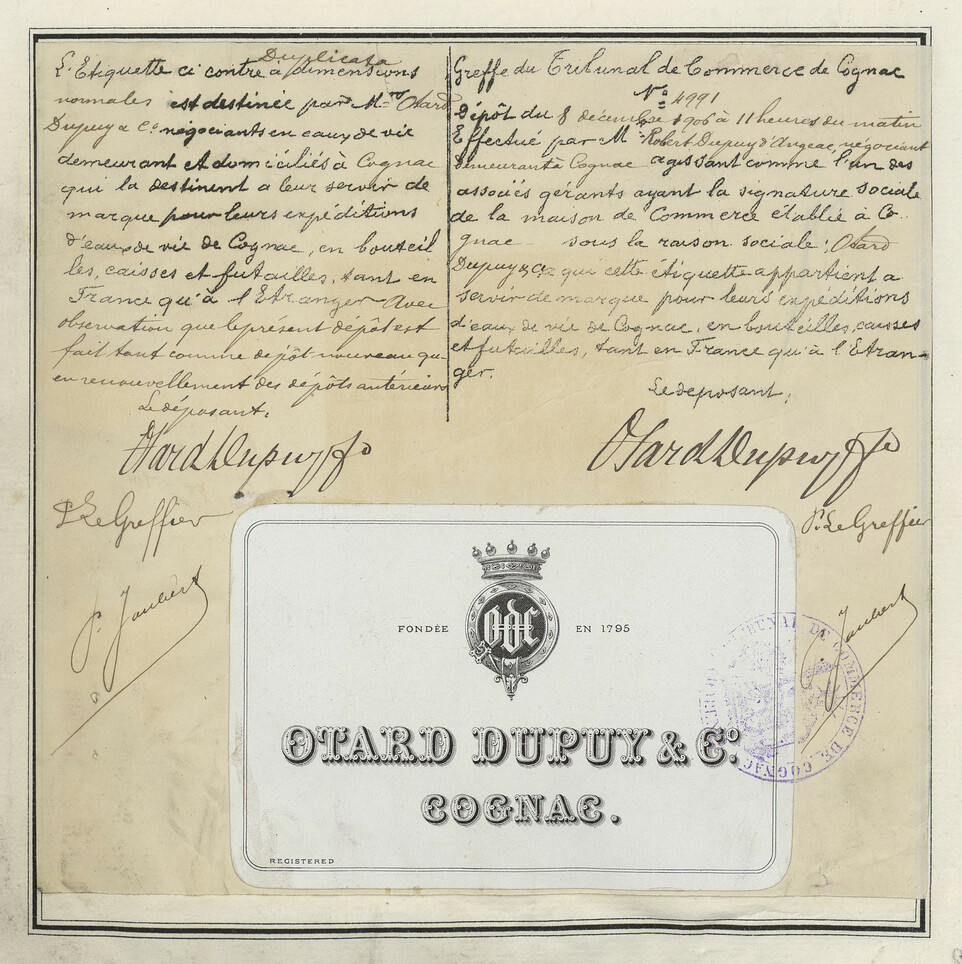 Duplicata
L'Etiquette ci contre à dimensions
normales est destinée par Mrs Otard
Dupuy & Co négociants en eaux de vie
demeurant et domiciliés à Cognac
qui la destinent a leur servir de
marque pour leurs expéditions
d'eaux de vie de Cognac, en bouteil
les, caisses et futailles, tant en
France qu'à l'Etranger Avec
observation que le présent dépôt est
fait tant comme dépôt nouveau qu'
en renouvellement des dépôts antérieurs
Le déposant:
Otard Dupuy & Co
P. Le Greffier
P. Jaubert
Greffe du Tribunal de Commerce de Cognac
No 4991
Dépôt du 8 décembre 1906 à 11 heures du matin
Effectué par M Robert Dupuy d'Angeac, négociant
demeurant à Cognac agissant comme l'un des
associés gérants ayant la signature sociale
de la maison de Commerce établie à Co
gnac sous la raison sociale: Otard
Dupuy & Co qui cette étiquette appartient a
servir de marque pour leurs expéditions
d'eaux de vie de Cognac, en bouteilles, caisses
et futailles, tant en France qu'à l'Etran-
ger.
Le deposant:
Otard Dupuy & Co
P. Le Greffier
P. Jaubert
FONDÉE EN 1795
ODC
OTARD DUPUY & Co.
COGNAC.
REGISTERED
TRIBUNAL DE COMMERCE DE COGNAC